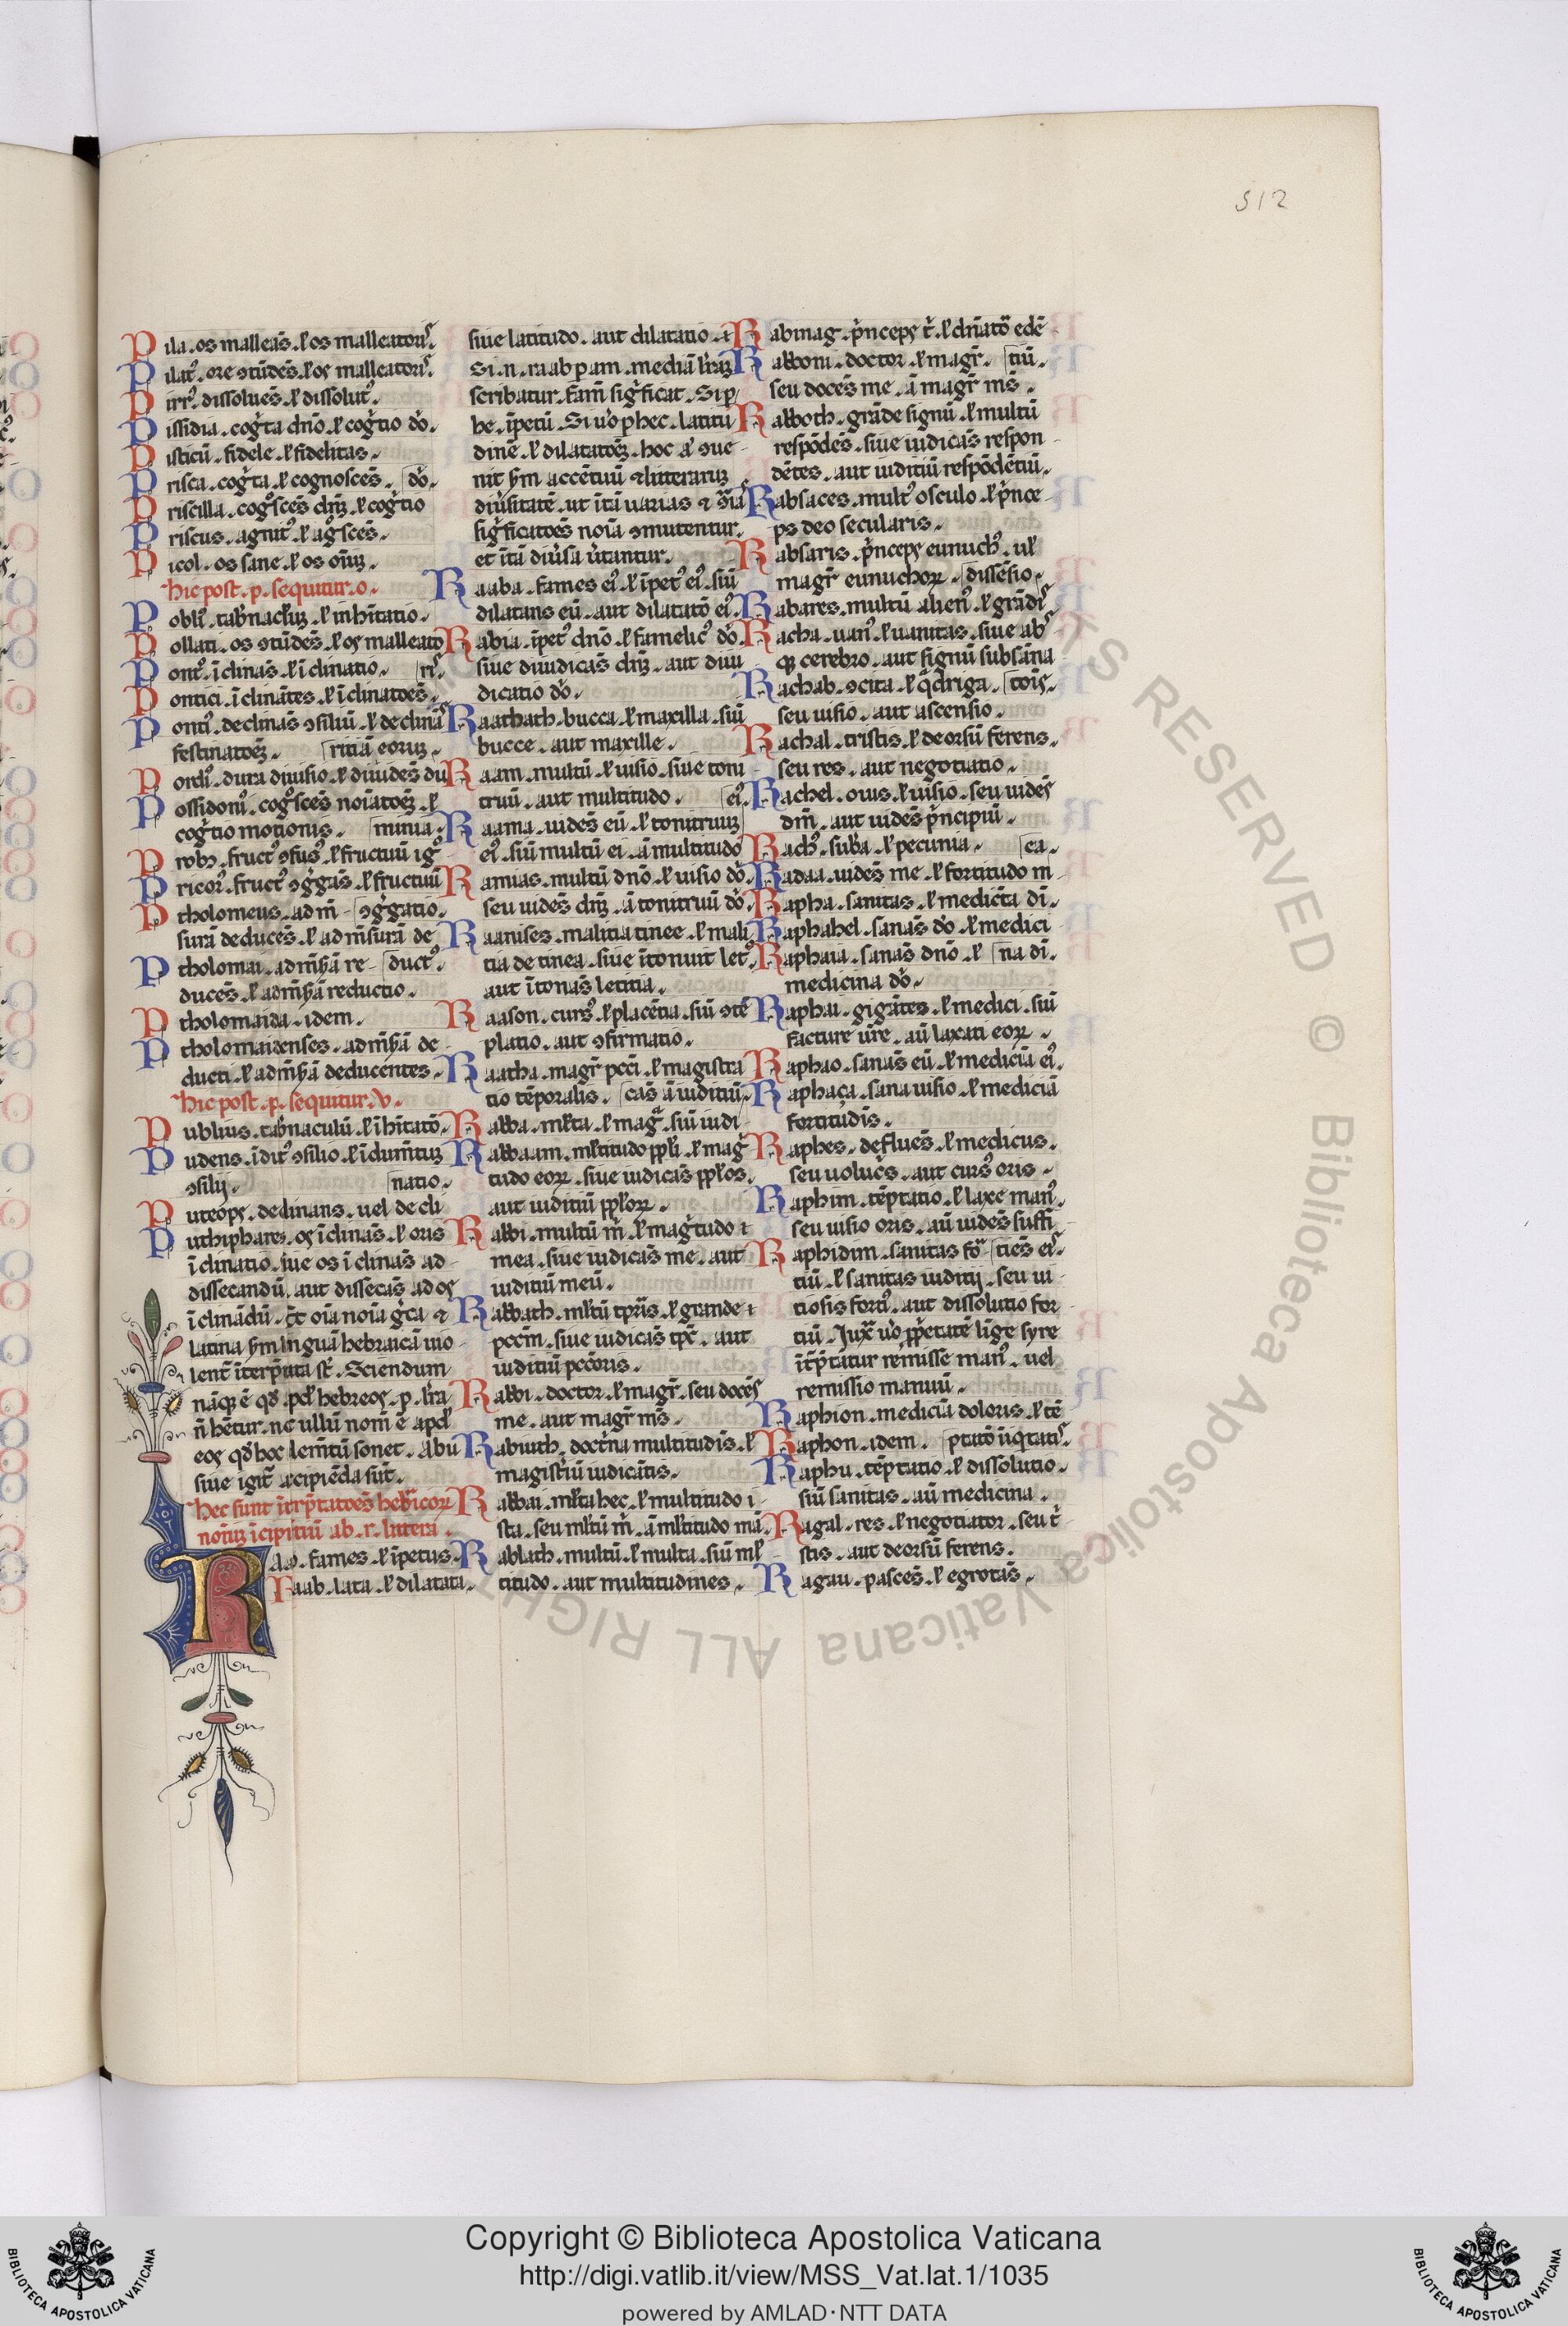 512
Pila. os malleās. ł os malleatoris.
Pilatꝰ. ore ꝯtūdēs. ł os malleatoris.
Pirrꝰ. dissoluēs. ł dissolutꝰ.
Pissidia. cogͥta dn̄o. ł cogͥtio do.
Pisticū. fidele. ł fidelitas.
Prisca. cogͥta. ł cognoscēs. do.
Priscilla. cogͦscēs dn̄ꝫ. ł cogͥtio
Priscus. agnitꝰ. ł agͦscēs.
Picol. os sane. ł os om̄ꝫ.
Hic post. p. sequitur. o.
Poblꝰ. tab̄nacłꝫ. ł inhītatio.
Pollati. os ꝯtūdēs. ł os malleato ris.
Pontꝰ. īclinās. ł īclinatio.
Pontici. īclināтes. ł īclinatoēs.
Pontꝰ. declinās ꝯsiliū. ł declinās
festinatoēꝫ. ritiā eoruꝫ.
Pordꝰ. dura diuisio. ł diuidēs du
Possidonꝰ. cogͦscēs noīatoēꝫ. ł
cogͥtio motionis. minia.
Probꝫ. fructꝰ ꝯfusꝰ. ł fructuū igͦ
Pricorꝰ. fructꝰ ꝯgͥgās. ł fructuū
Ptholomeus. ad m̄ ꝯgͥgatio.
surā deducēs. ł ad m̄surā de
Ptholomai. ad m̄s̄ā re ductꝰ.
ducēs. ł ad m̄s̄ā reductio.
Ptholomaida. idem.
Ptholomaidenses. ad m̄s̄ā de
ducti. ł ad m̄s̄ā deducentes.
Hic post. p. sequitur. v.
Publius. tab̄naculū. ł īhitatō.
Pudens. īditꝰ ꝯsilio. ł īdum̄tuꝫ
ꝯsilij. natio.
Puteops. declinans. uel decli
Puthiphares. os īclinās. ł oris
īclinatio. siue os īclinās ad
dissecandū. aut dissecās ad os
īclinādū. Et oīa noīa gͥca ⁊
latina s̄m linguā hebraicā uio
lent̄ īterp̄tata st̄. Sciendum
nāqꝫ ē qď. pđ hebreos. p. lr̄a
n̄ hētur. nc ullū nom̄ ē apđ
eos qď hoc lem̄tū sonet. Abu
siue igit̄ acipiēda sūt.
Hec sunt īterp̄tatoēs heb̄icoꝝ
noīuꝫ īcipitiū ab. r. littera.
Rao. fames. ł īpetus.
Raab. lata. ł dilatata.
siue latitudo. aut dilatatio. ⁊
Si. n. raab p am. mediā lr̄aꝫ
scribatur. famē sigͥficat. Si p
he. īpetū. Si uͦo p hec. latitu
dinē. ł dilatatoēꝫ. hoc aͧ ꝯue
nit s̄m accētuū ⁊ litteraruꝫ
diuͥsitatē. ut ītā uarias ⁊ dͥia
sigͥficatoēs noīa ꝯmutentur.
et ītā diuͥsa uͥtantur.
Raaba. fames eiꝰ. ł īpetꝰ eiꝰ. siū
dilatans eū. aut dilatatō eiꝰ.
Rabia. īpetꝰ dn̄o. ł famelicꝰ do.
siue diiudicās dn̄ꝫ. aut diiu
dicatio do.
Raathath. bucca. ł maxilla. siū
bucce. aut maxille.
Raam. multū. ł uisio. siue toni
truū. aut multitudo. eiꝰ.
Raama. uidēs eū. ł tonitruuꝫ
eiꝰ. siū multū ei. ā multitudo
Ramias. multū dn̄o. ł uisio do.
seu uidēs dn̄ꝫ. ā tonitruū do.
Raanises. malitia tinee. ł mali
tia de tinea. siue ītonuit letꝰ.
aut ītonās letitia.
Raason. cursꝰ. ł placētia. siū ꝯtē
platio. aut ꝯfirmatio.
Raatha. magr̄ pcc̄i. ł magistra
tio tēporalis. cās ā iuditiū.
Rabba. młta. ł magͣ. siū iudi
Rabbaam. młtitudo ppłi. ł magͥ
tudo eoꝝ. siue iudicās ppłos.
aut iuditiū ppłoꝝ.
Rabbi. multū m̄. ł magͥtudo ⁊
mea. siue iudicās me. aut
iuditiū meū.
Rabbath. młtū tpr̄is. ł grande ⁊
pcc̄m. siue iudicās tp̄c. aut
iuditiū pcc̄oris.
Rabbi. doctor. ł magr̄. seu docēs
me. aut magr̄ ms̄.
Rabiuth. doctͥna multitudīs. ł
magistͥiū iudicātis.
Rabbai. młta hec. ł multitudo i
sta. seu młtū m̄. ā młtitudo mā.
Rablath. multū. ł multa. siū mł
titudo. aut multitudines.
Rabmag. pͥnceps t̄. ł dn̄atō edē
Rabboni. doctor. ł magr̄. tiū.
seu docēs me. ā magr̄ ms̄.
Rabboth. grāde signū. ł multū
respōdēs. siue iudicās respon
dētes. aut iuditiū respōdētiū.
Rabsaces. multꝰ osculo. ł pͥnce
ps deo secularis.
Rabsaris. pͥnceps eunuchꝰ. uł
magr̄ eunuchoꝝ. dissēsio.
Rabares. multū alienꝰ. ł grādis
Racha. uanꝰ. ł uanitas. siue abs
qꝫ cerebro. aut signū subsāna
Rachab. ꝯcita. ł qͣdriga. tois.
seu uisio. aut ascensio.
Rachal. tristis. ł deorsū ferens.
seu res. aut negotiatio.
Rachel. ouis. ł uisio. seu uidēs
dm̄. aut uidēs pͥncipiū.
Rachꝰ. suba. ł pecunia. ea.
Radaa. uidēs me. ł fortitudo m
Rapha. sanitas. ł medicͥta di.
Raphahel. sanās do. ł medici
Raphaia. sanās dn̄o. ł na di.
medicina do.
Raphai. gigātes. ł medici. siū
facture ur̄e. aū laxati eoꝝ.
Raphao. sanās eū. ł mediciā eiꝰ.
Raphaca. sana uisio. ł mediciā
fortitudīs.
Raphes. deflues. ł medicus.
seu uolucs. aut cursꝰ oris.
Raphim. tēptatio. ł laxe manꝰ.
seu uisio oris. aū uidēs suffi
Raphidim. sanitas foͬ ciēs eis.
tiū. ł sanitas iuditij. seu ui
tiosis fortꝰ. aut dissolutio for
tiū. Juxͣ uͦo pp̄etatē lige syre
ītp̄tātur remisse manꝰ. uel
remissio manuū.
Raphion. mediciā doloris. ł tē
Raphon. idem. ptatō īiqtatis.
Raphu. tēptatio. ł dissolutio.
siū sanitas. aū medicina.
Ragal. res. ł negotiator. seu tͥ
stis. aut deorsū ferens.
Ragau. pascēs. ł egrotās.
ALL RIGHTS RESERVED © Biblioteca Apostolica Vaticana
Copyright © Biblioteca Apostolica Vaticana
http://digi.vatlib.it/view/MSS_Vat.lat.1/1035
powered by AMLAD·NTT DATA
BIBLIOTECA APOSTOLICA VATICANA
BIBLIOTECA APOSTOLICA VATICANA